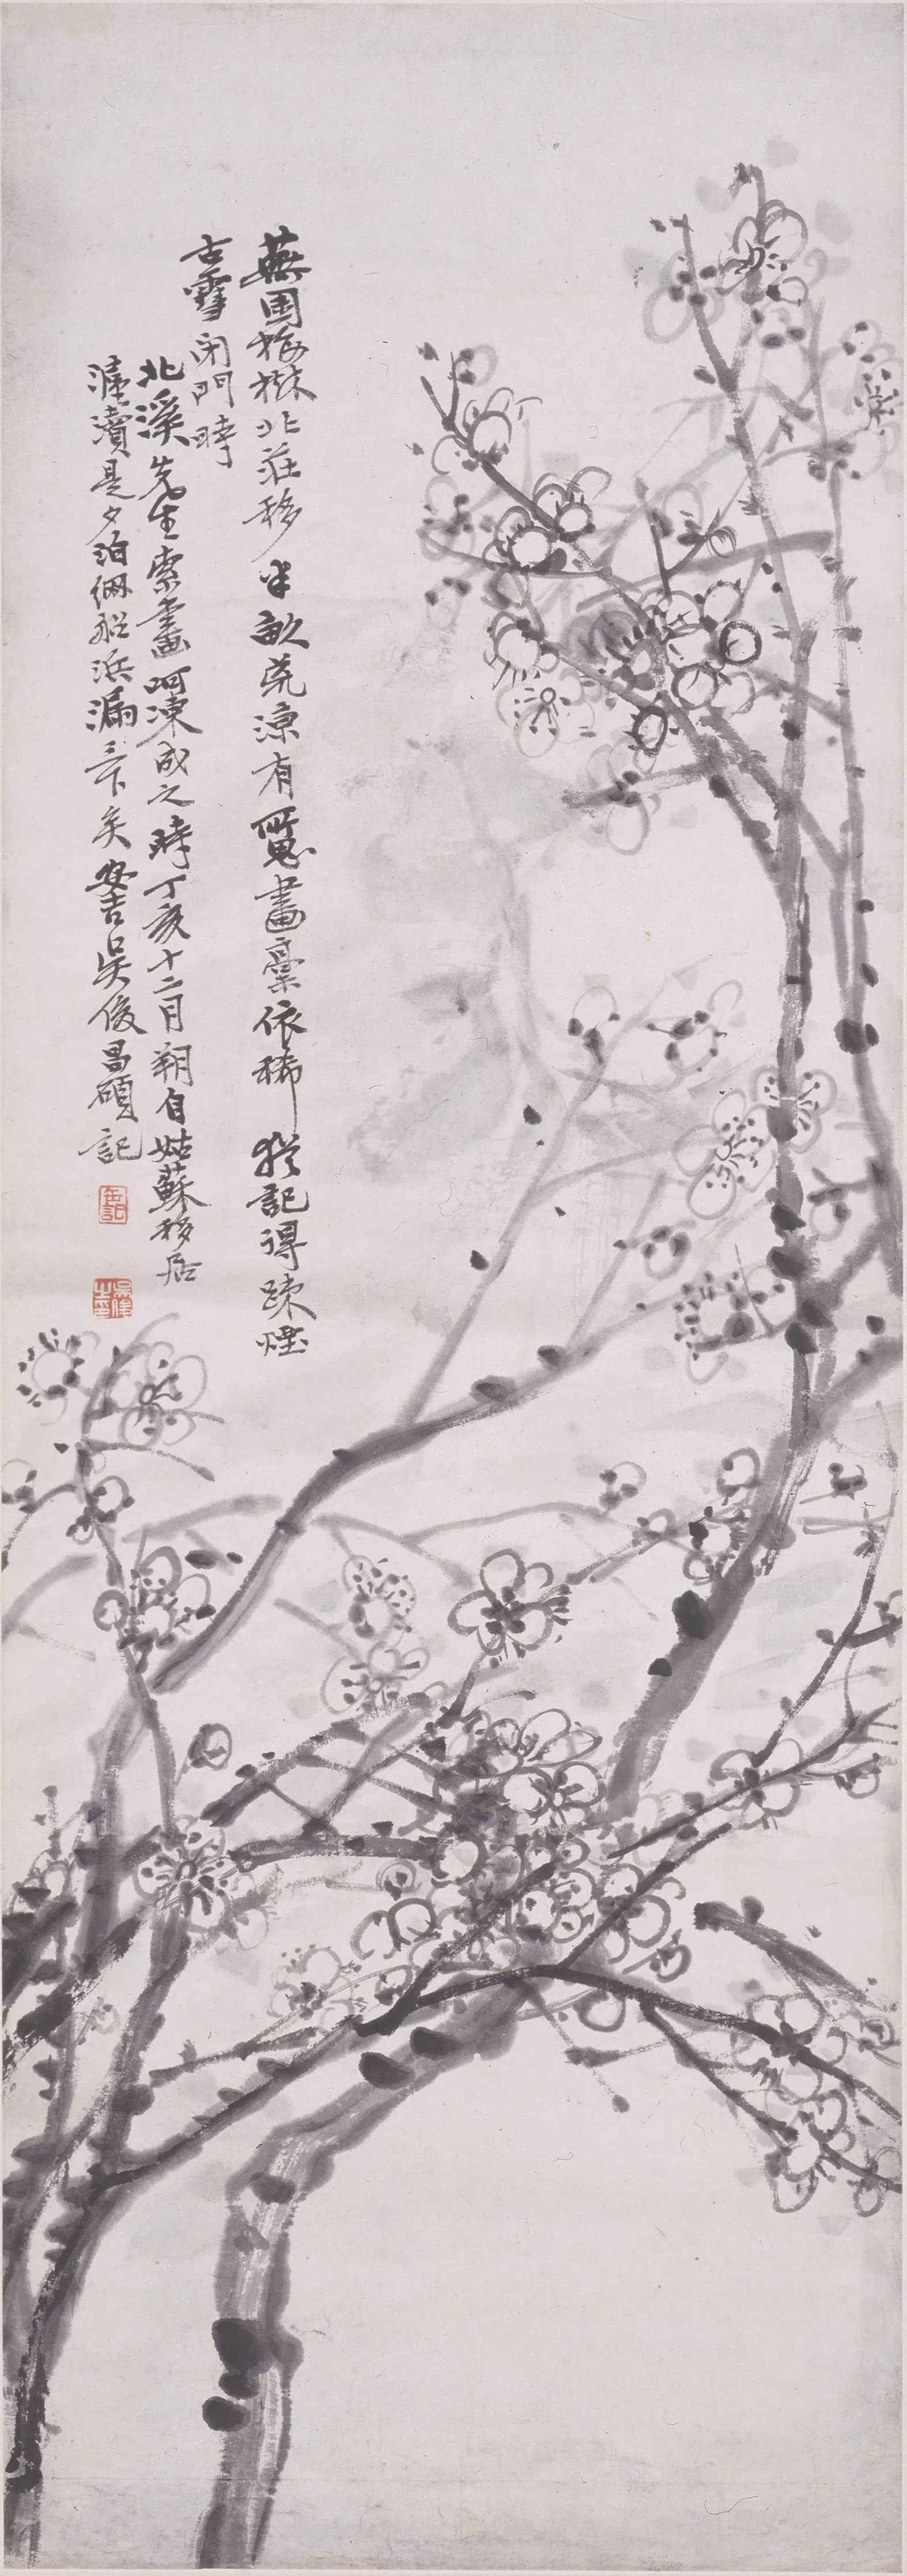 蕪園梅樹北莊移半畝荒涼有所思畫稾依稀猶記得疎煙
古雪閉門時
北溪先生索畫呵凍成之時丁亥十二月朔自姑蘇移居
滬瀆是夕泊網船浜漏三下矣安吉吳俊昌碩記
缶記